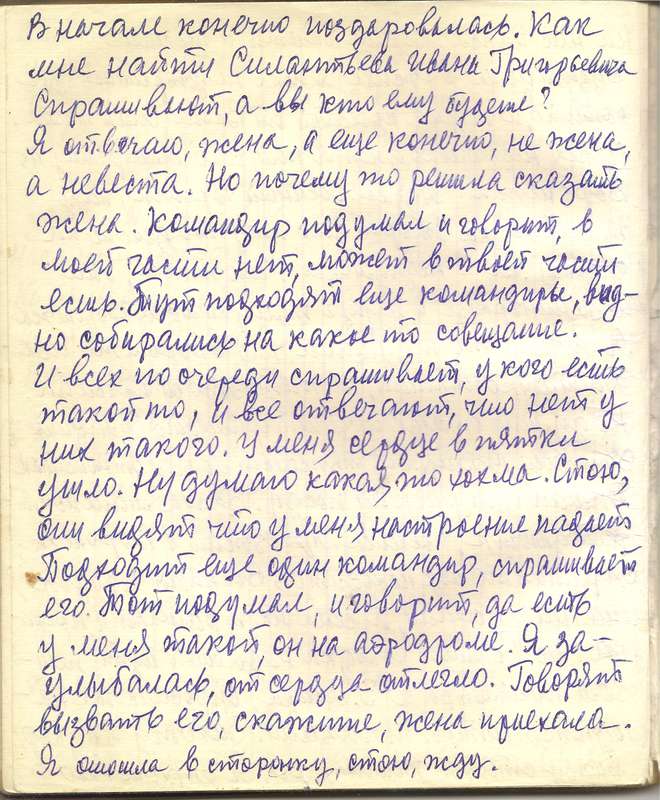 В начале конечно поздаровалась. Как
мне найти Силантьева Ивана Григорьевича
Спрашивают, а вы кто ему будете?
Я отвечаю, жена, а еще конечно, не жена,
а невеста. Но почему то решила сказать
жена. Командир подумал и говорит, в
моей части нет, может в твоей части
есть. Тут подходят еще командиры, вид-
но собирались на какое то совещание.
И всех по очереди спрашивает, у кого есть
такой то, и все отвечают, что нет у
них такого. У меня сердце в пятки
ушло. Ну думаю какая то хохма. Стою,
они видят что у меня настроение падает
Подходит еще один командир, спрашивает
его. Тот подумал, и говорит, да есть
у меня такой, он на аэродроме. Я за-
улыбалась, от сердца отлегло. Говорят
вызвать его, скажите, жена приехала.
Я отошла в сторонку, стою, жду.